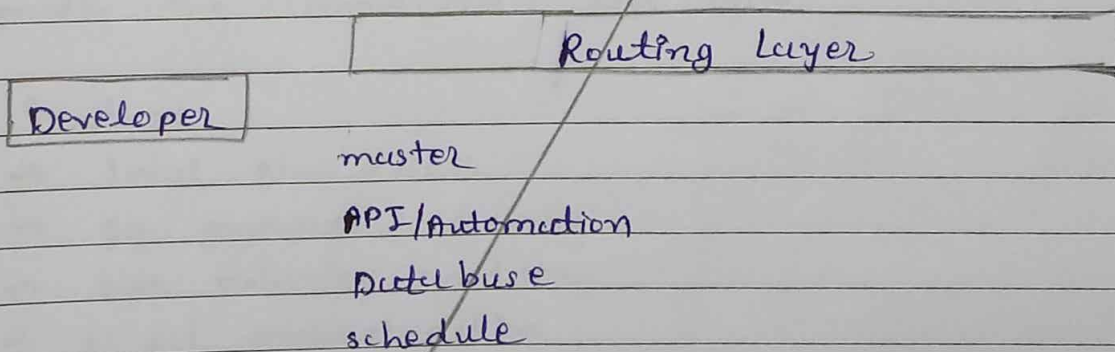 Routing Layer
Developer
master
API/Automation
Database
schedule